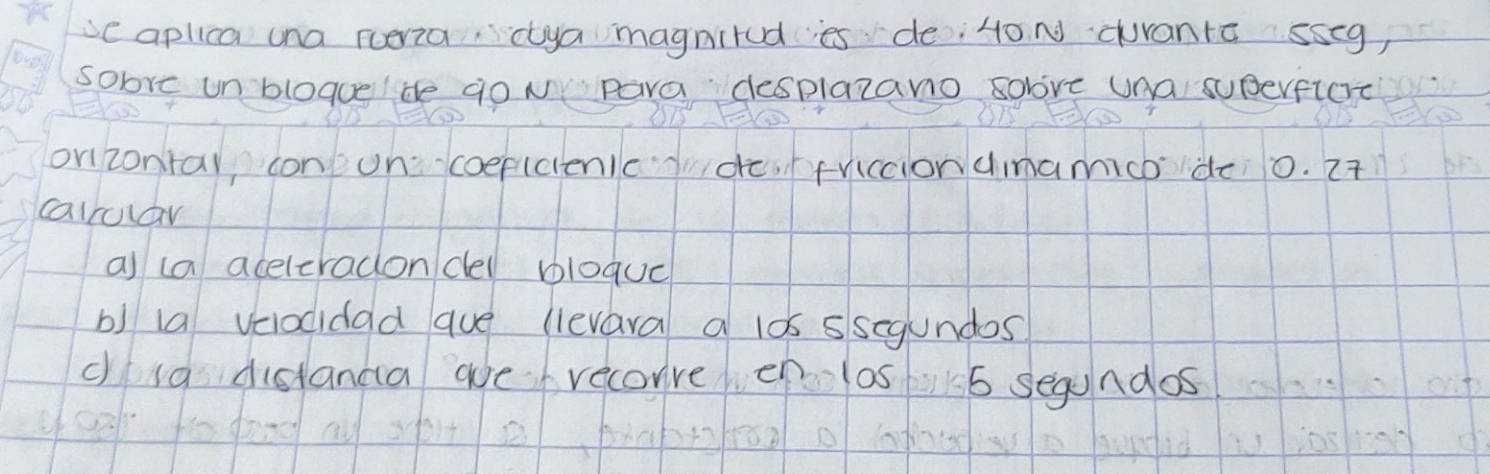 se aplica una fuerza cuya magnitud es de 40N durante 5seg,
sobre un bloque de 90N para desplazarlo sobre una superficie
orizontal, con un coeficiente de friccion dinamico de 0.27
calcular
a) la aceleracion del bloque
b) la velocidad que llevara a los 5segundos
c) la distancia que recorre en los 5 segundos